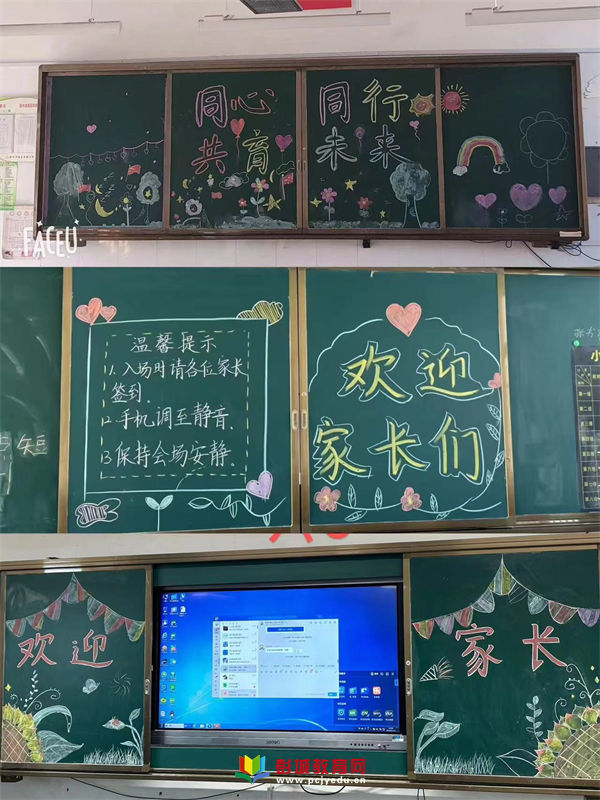 同心 同行
共育 未来
FACEU
温馨提示
1. 入场时请各位家长
签到.
2.手机调至静音.
3.保持会场安静.
欢迎
家长们
欢迎
家长
彭城教育网
www.pcjyedu.cn